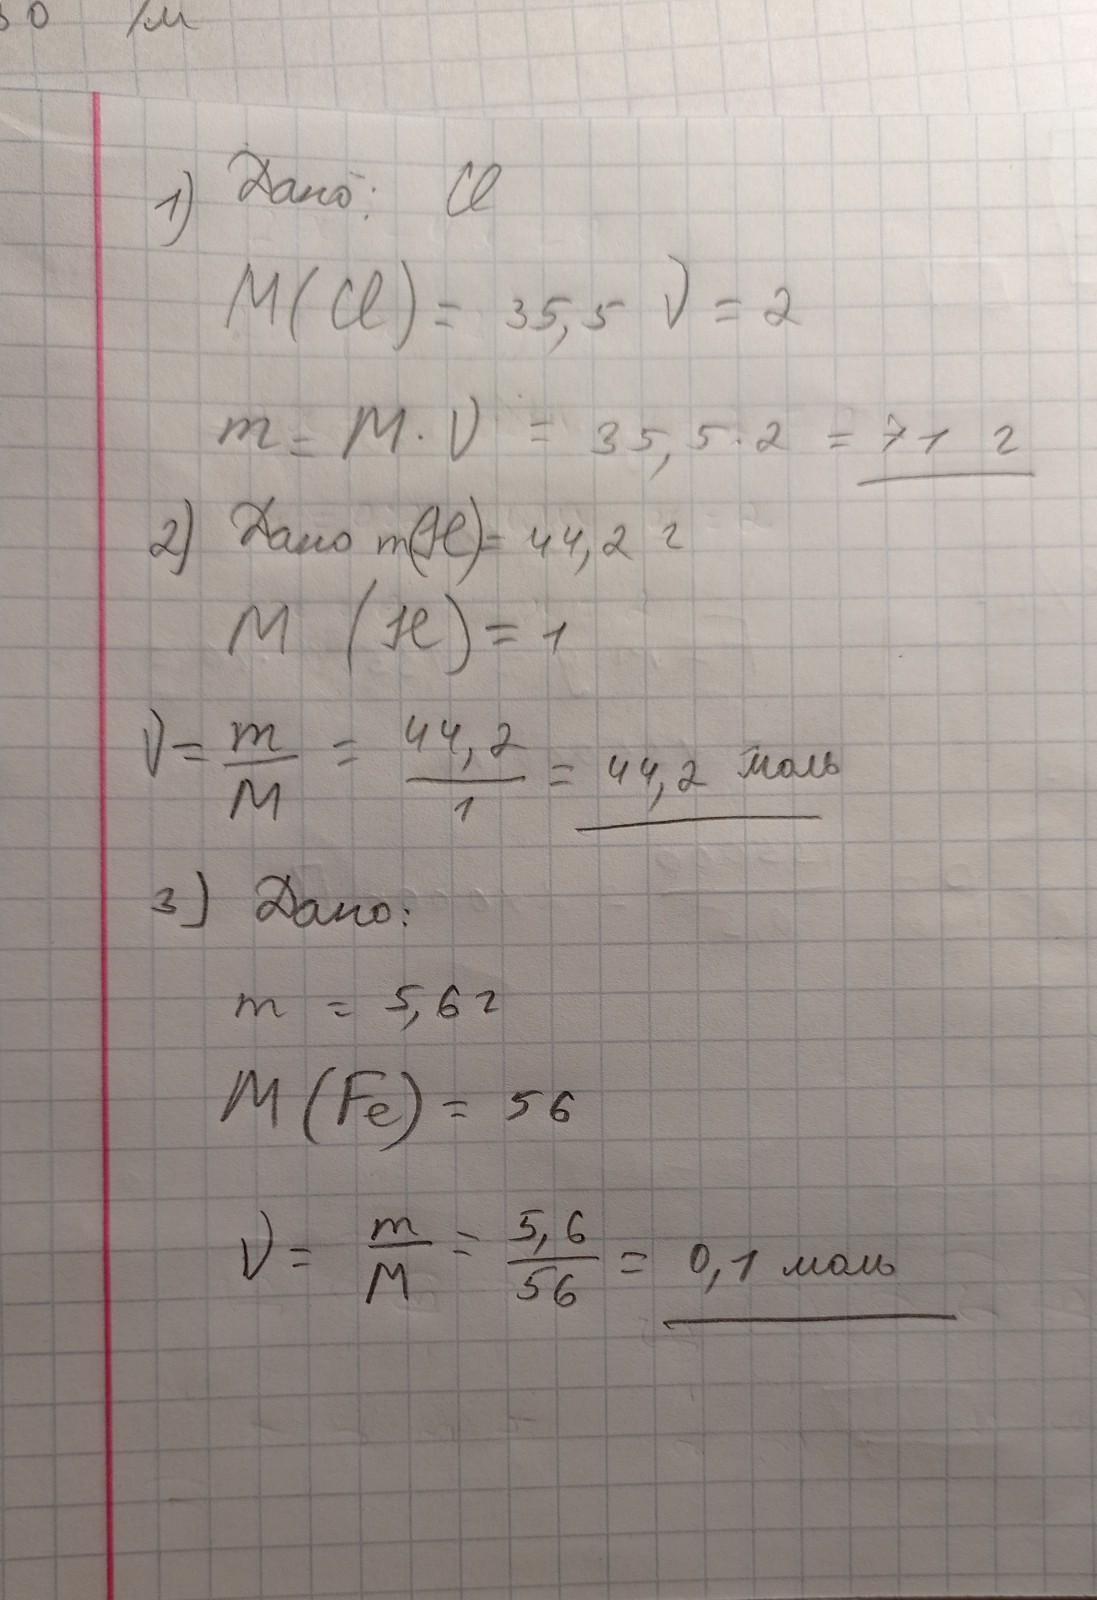 30 /м
1) Дано: Cl
M(Cl) = 35,5 ν = 2
m = M · ν = 35,5 · 2 = 71 г
2) Дано m(H) = 44,2 г
M (H) = 1
ν = m/M = 44,2/1 = 44,2 моль
3) Дано:
m = 5,6 г
M(Fe) = 56
ν = m/M = 5,6/56 = 0,1 моль